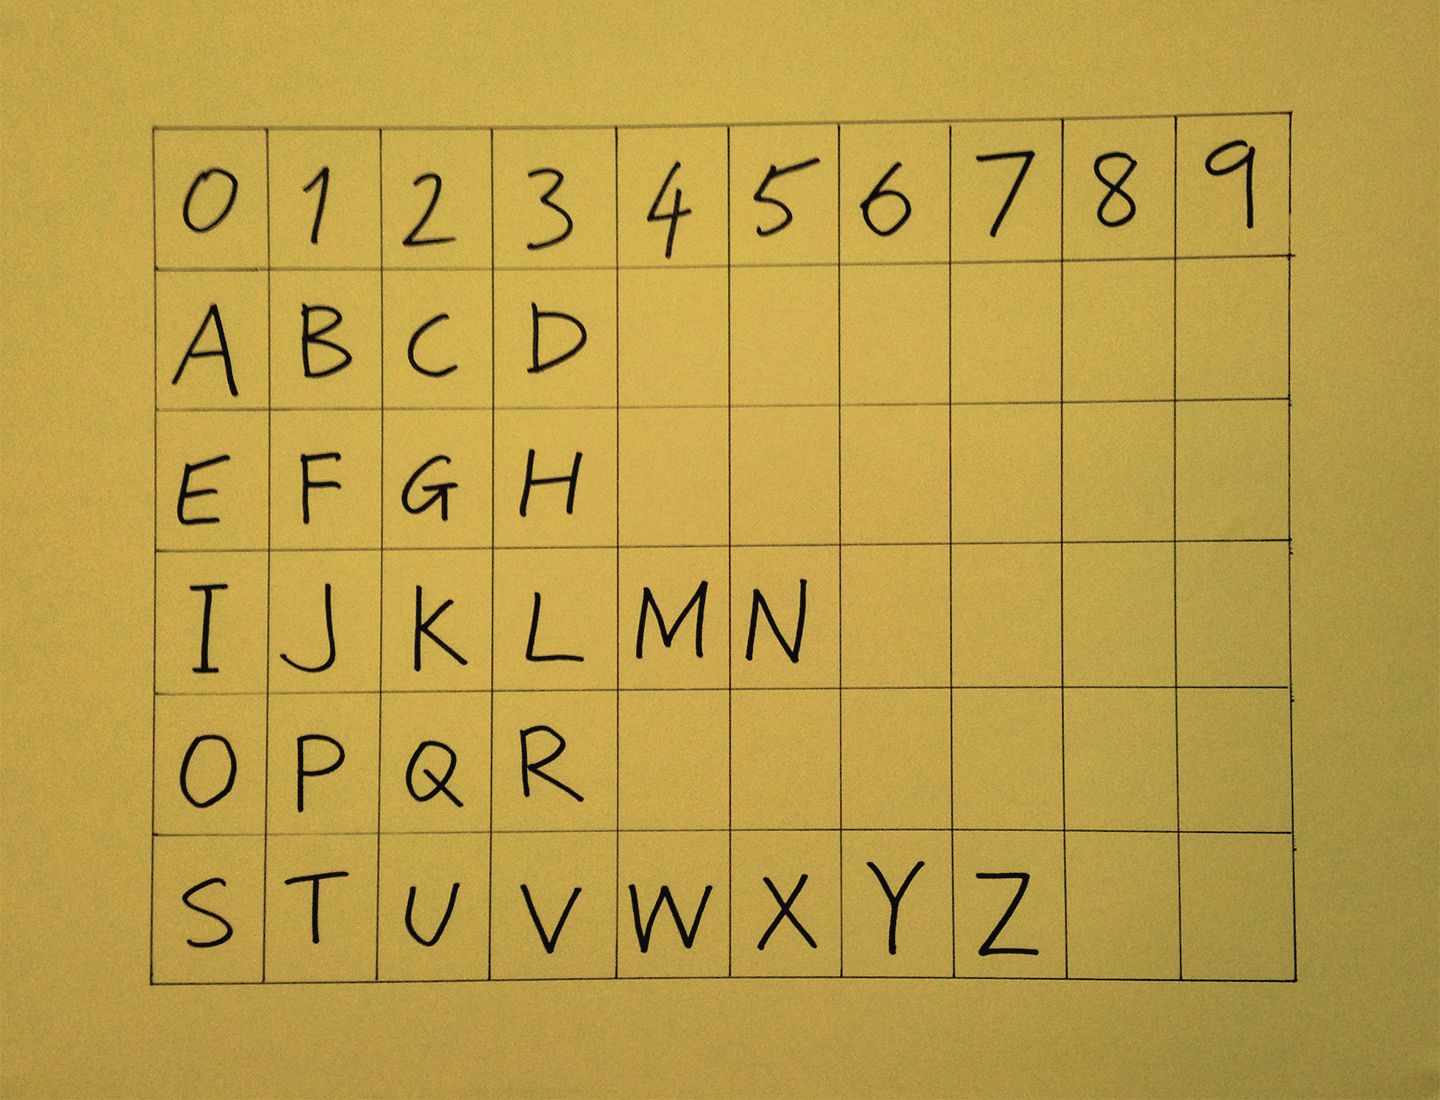 0 1 2 3 4 5 6 7 8 9
A B C D
E F G H
I J K L M N
O P Q R
S T U V W X Y Z